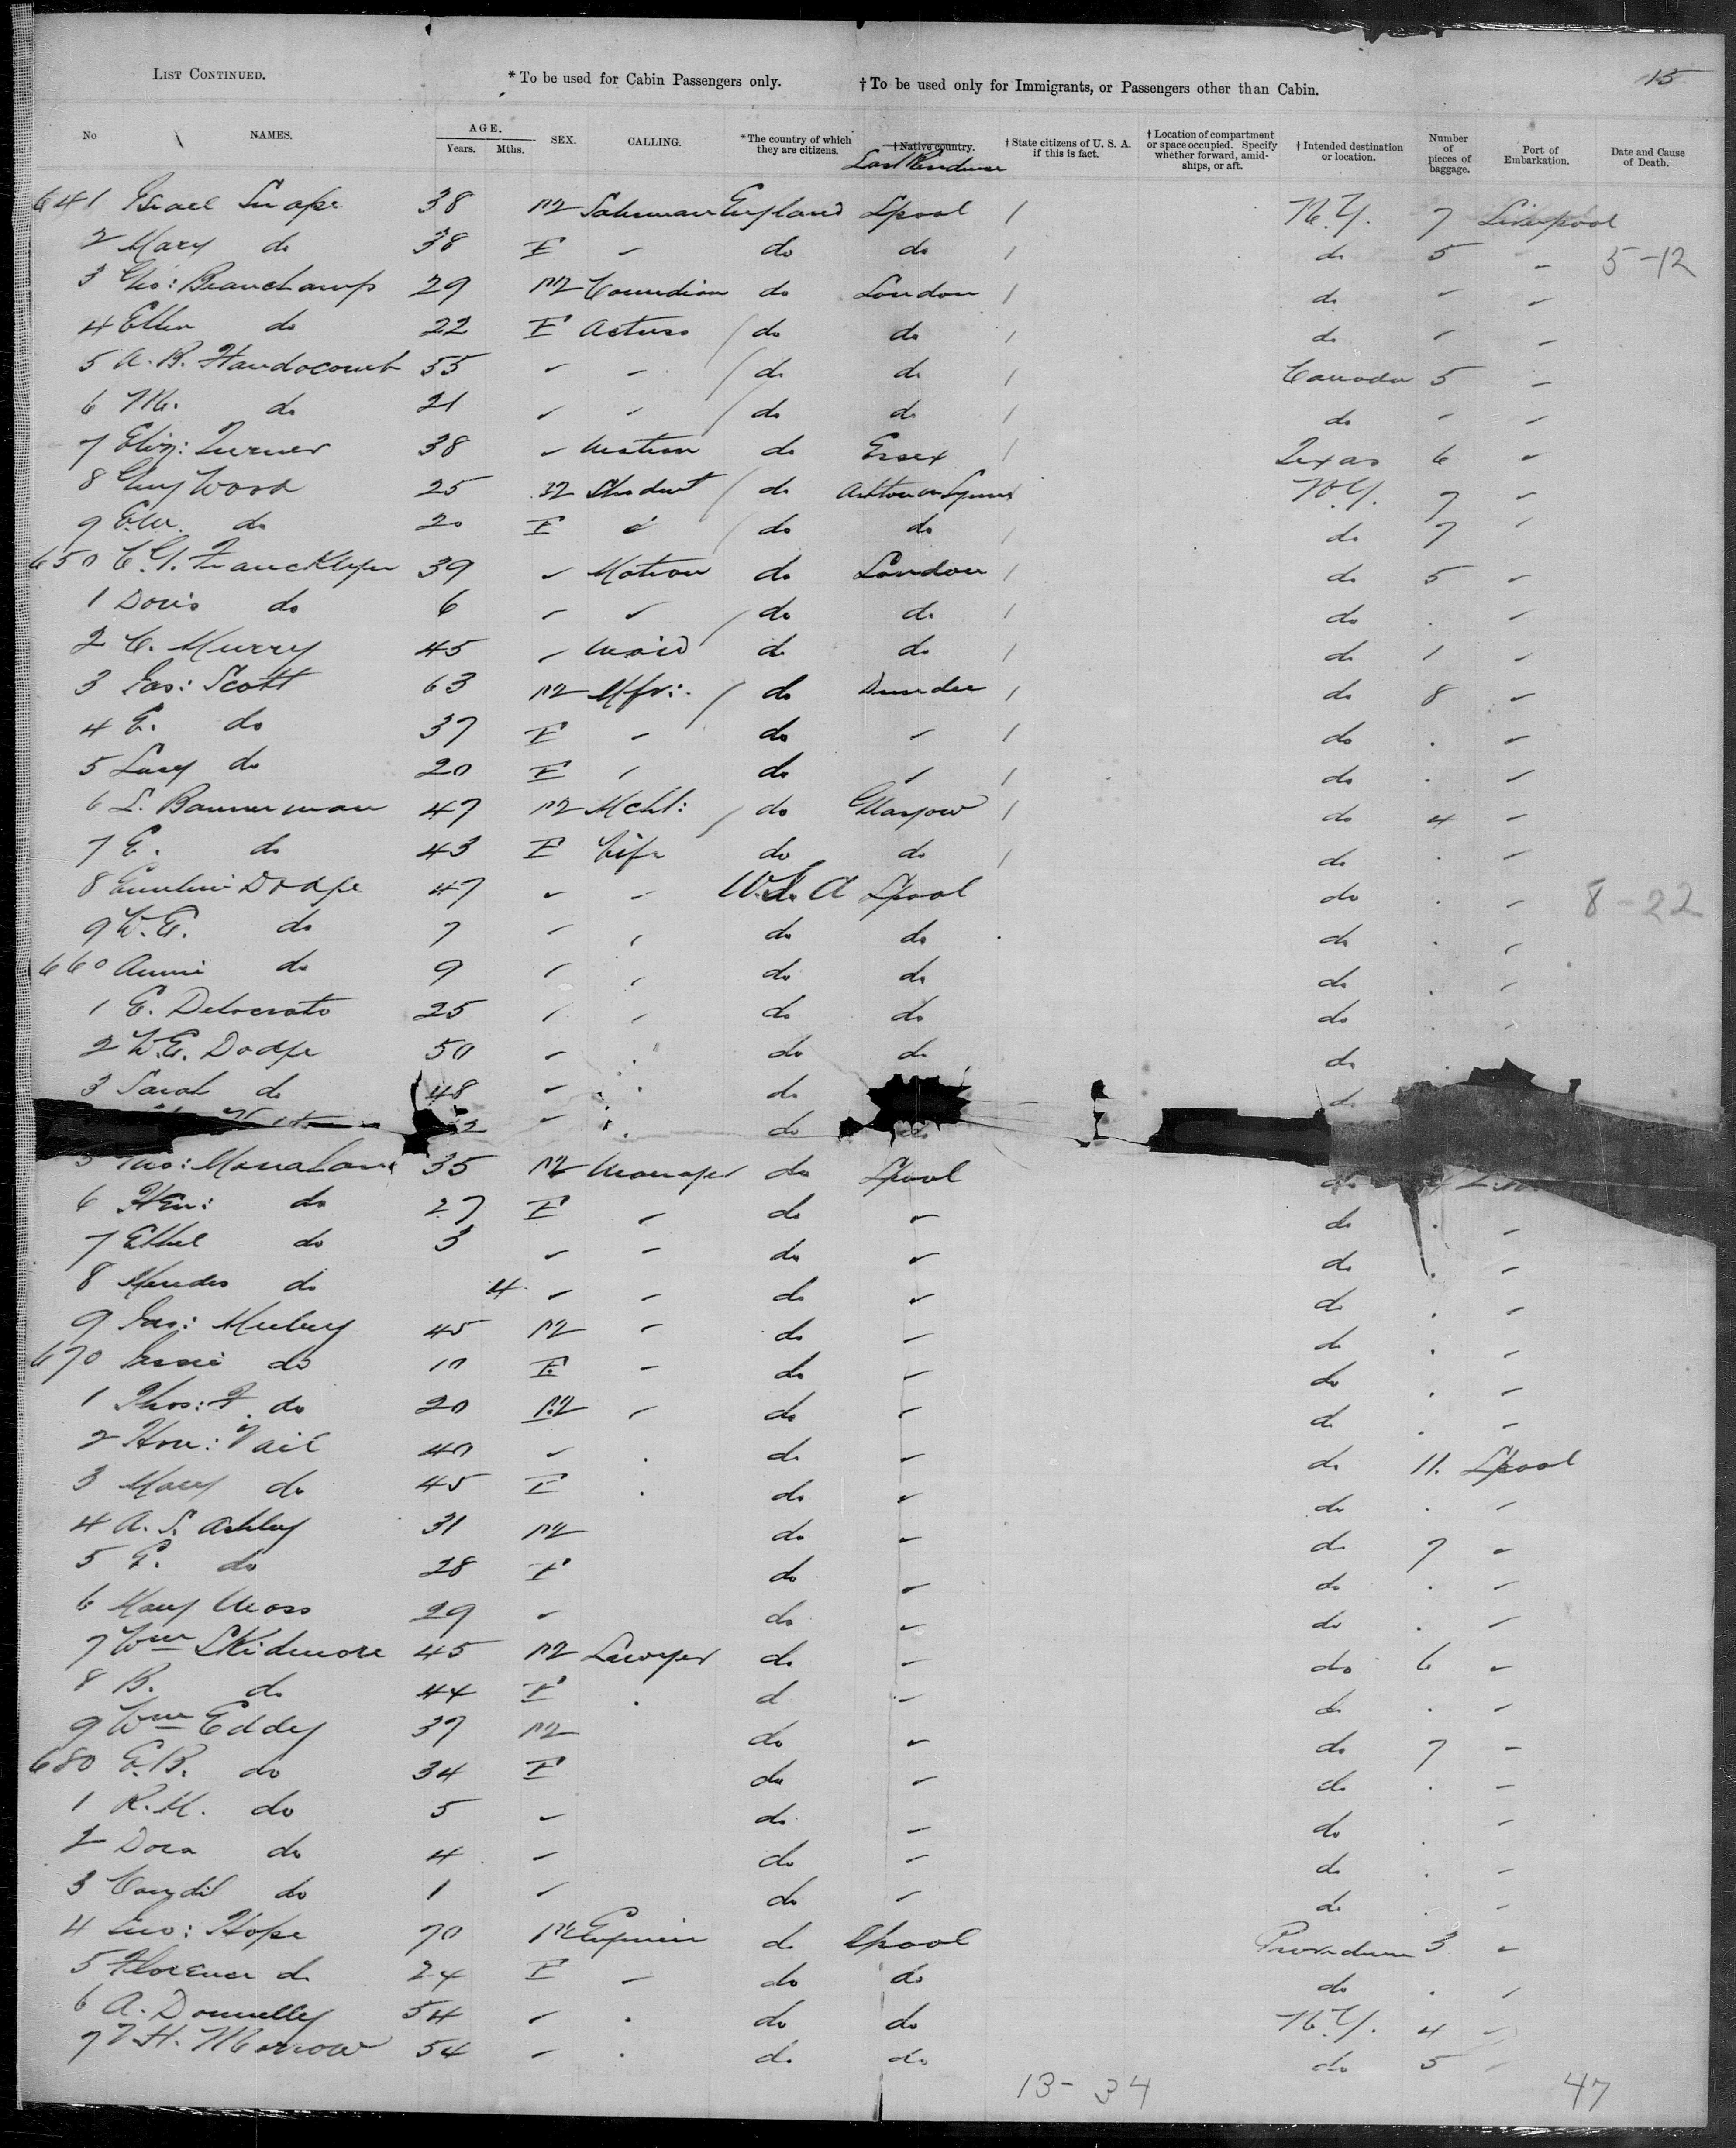 LIST CONTINUED. * To be used for Cabin Passengers only. † To be used only for Immigrants, or Passengers other than Cabin. 15
No NAMES. AGE. Years. Mths. SEX. CALLING. * The country of which they are citizens. † Native country. Last Residence † State citizens of U. S. A. if this is fact. † Location of compartment or space occupied. Specify whether forward, amidships, or aft. † Intended destination or location. Number of pieces of baggage. Port of Embarkation. Date and Cause of Death.
641 Israel Snape 38 M Salesman England Lpool / N.Y. 7 Liverpool
2 Mary do 38 F - do do / do 5 - 5-12
3 Geo: Beauchamp 29 M Comedian do London / do - -
4 Ellen do 22 F Actress / do do / do - -
5 A. B. 55 - - / do do / Canada 5 -
6 M. do 21 - - / do do / do - -
7 Eliz: Turner 38 - Matron do Essex / Texas 6 -
8 Wood 25 M Student / do / N.Y. 7 -
9 do 20 F / do do / do 7 -
650 C. G. Francklyn 39 - Matron do London / do 5 -
1 Doris do 6 - - / do do / do . -
2 C. Murry 45 - Maid do do / do 1 -
3 Jas: Scott 63 M Mfr: / do Dundee / do 8 -
4 E. do 37 F - do - / do . -
5 Lucy do 20 F - do - / do . -
6 L. Bannerman 47 M Mcht: / do Glasgow / do 4 -
7 E. do 43 F Wife do do / do . -
8 Emeline Dodge 47 - - U.S.A Lpool do . - 8-22
9 W. E. do 7 - - do do . do . -
660 Annie do 9 - - do do do . -
1 E. 25 - - do do do . -
2 W. E. Dodge 50 - . do do do .
3 Sarah do 48 - . do do
2 - . do do
5 35 M Manager do Lpool do
6 Hen: do 27 F - do - do . -
7 Ethel do 3 - - do - do . -
8 do 4 - - do - do . -
9 Jas: 45 M - do - do . -
670 Jessie do 10 F - do - do . -
1 Thos: F. do 20 M - do - do . -
2 Hon: Vail 40 - . do - do 11. Lpool
3 Mary do 45 F . do - do . -
4 A. S. Ashley 31 M do - do 7 -
5 E. do 28 F do - do . -
6 Mary Moss 29 - do - do . -
7 Wm Skidmore 45 M Lawyer do - do 6 -
8 B. do 44 F . d - do . -
9 Wm Eddy 37 M do - do 7 -
680 E. B. do 34 F do - do . -
1 R. H. do 5 - do - do -
2 Dora do 4 - do - do . -
3 do 1 - do - do . -
4 Hope 70 M do Lpool 3 -
5 Florence do 24 F - do do do . -
6 A. Donnelly 54 - . do do N.Y. 4 -
7 H. Morrow 54 - . do do do 5 -
13-34 47